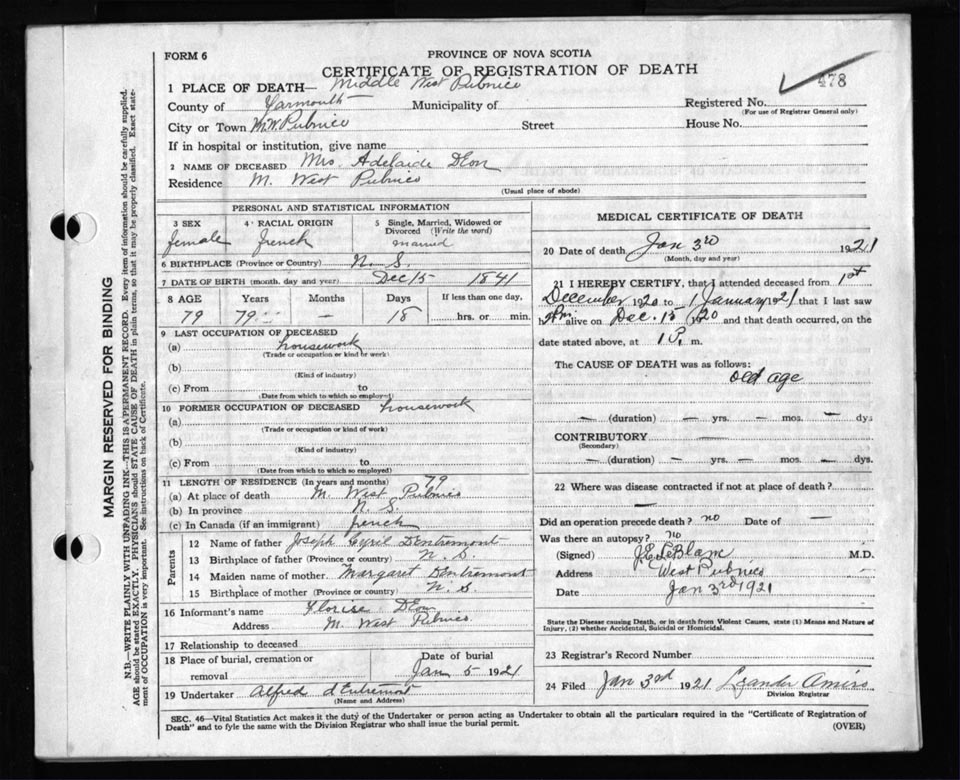 FORM 6
PROVINCE OF NOVA SCOTIA
CERTIFICATE OF REGISTRATION OF DEATH
478
1 PLACE OF DEATH— Middle West Pubnico
County of Yarmouth Municipality of Registered No.
(For use of Registrar General only)
City or Town M.W. Pubnico Street House No.
If in hospital or institution, give name
2 NAME OF DECEASED Mrs. Adelaide DEon
Residence M. West Pubnico
(Usual place of abode)
PERSONAL AND STATISTICAL INFORMATION
3 SEX 4 RACIAL ORIGIN 5 Single, Married, Widowed or Divorced (Write the word)
female french married
6 BIRTHPLACE (Province or Country) N. S.
7 DATE OF BIRTH (month, day and year) Dec 15 1841
8 AGE Years Months Days If less than one day,
79 79 — 18 hrs. or min.
9 LAST OCCUPATION OF DECEASED
(a) housework
(Trade or occupation or kind or work)
(b)
(Kind of industry)
(c) From to
(Date from which to which so employed)
10 FORMER OCCUPATION OF DECEASED housework
(a)
(Trade or occupation or kind of work)
(b)
(Kind of industry)
(c) From to
(Date from which to which so employed)
11 LENGTH OF RESIDENCE (In years and months) 79
(a) At place of death M. West Pubnico
(b) In province N. S.
(c) In Canada (if an immigrant) french
Parents
12 Name of father Joseph Cyril DEntremont
13 Birthplace of father (Province or country) N. S.
14 Maiden name of mother Margaret DEntremont
15 Birthplace of mother (Province or country) N. S.
16 Informant's name Elorise DEon
Address M. West Pubnico
17 Relationship to deceased
18 Place of burial, cremation or removal Date of burial
Jan 5 1921
19 Undertaker Alfred d'Entremont
(Name and Address)
MEDICAL CERTIFICATE OF DEATH
20 Date of death Jan 3rd 1921
(Month, day and year)
21 I HEREBY CERTIFY, that I attended deceased from 1st
December 1920 to 1 January 1921 that I last saw
h alive on Dec. 15 1920 and that death occurred, on the
date stated above, at 1 P. m.
The CAUSE OF DEATH was as follows:
old age
— (duration) — yrs. — mos. — dys
CONTRIBUTORY —
(Secondary)
— (duration) — yrs. — mos. — dys.
22 Where was disease contracted if not at place of death?
—
Did an operation precede death? no Date of —
Was there an autopsy? no
(Signed) J.E. LeBlanc M.D.
Address West Pubnico
Date Jan 3rd 1921
State the Disease causing Death, or in death from Violent Causes, state (1) Means and Nature of Injury, (2) whether Accidental, Suicidal or Homicidal.
23 Registrar's Record Number
24 Filed Jan 3rd 1921 Leander Amiro
Division Registrar
SEC. 46—Vital Statistics Act makes it the duty of the Undertaker or person acting as Undertaker to obtain all the particulars required in the "Certificate of Registration of
Death" and to fyle the same with the Division Registrar who shall issue the burial permit.
(OVER)
MARGIN RESERVED FOR BINDING
N.B.—WRITE PLAINLY WITH UNFADING INK—THIS IS A PERMANENT RECORD. Every item of information should be carefully supplied.
AGE should be stated EXACTLY. PHYSICIANS should STATE CAUSE OF DEATH in plain terms, so that it may be properly classified. Exact state-
ment of OCCUPATION is very important. See instructions on back of Certificate.